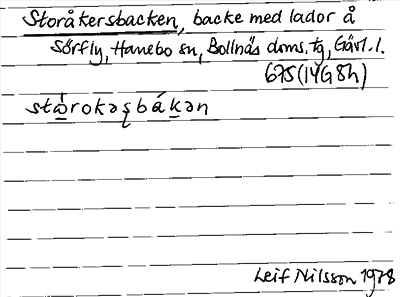 Storåkersbacken, backe med lador å
Sörfly, Hanebo sn, Bollnäs doms. tg, Gävl. l.
675 (14G 8h)
stȯ́rokəʂbákən
Leif Nilsson 1978